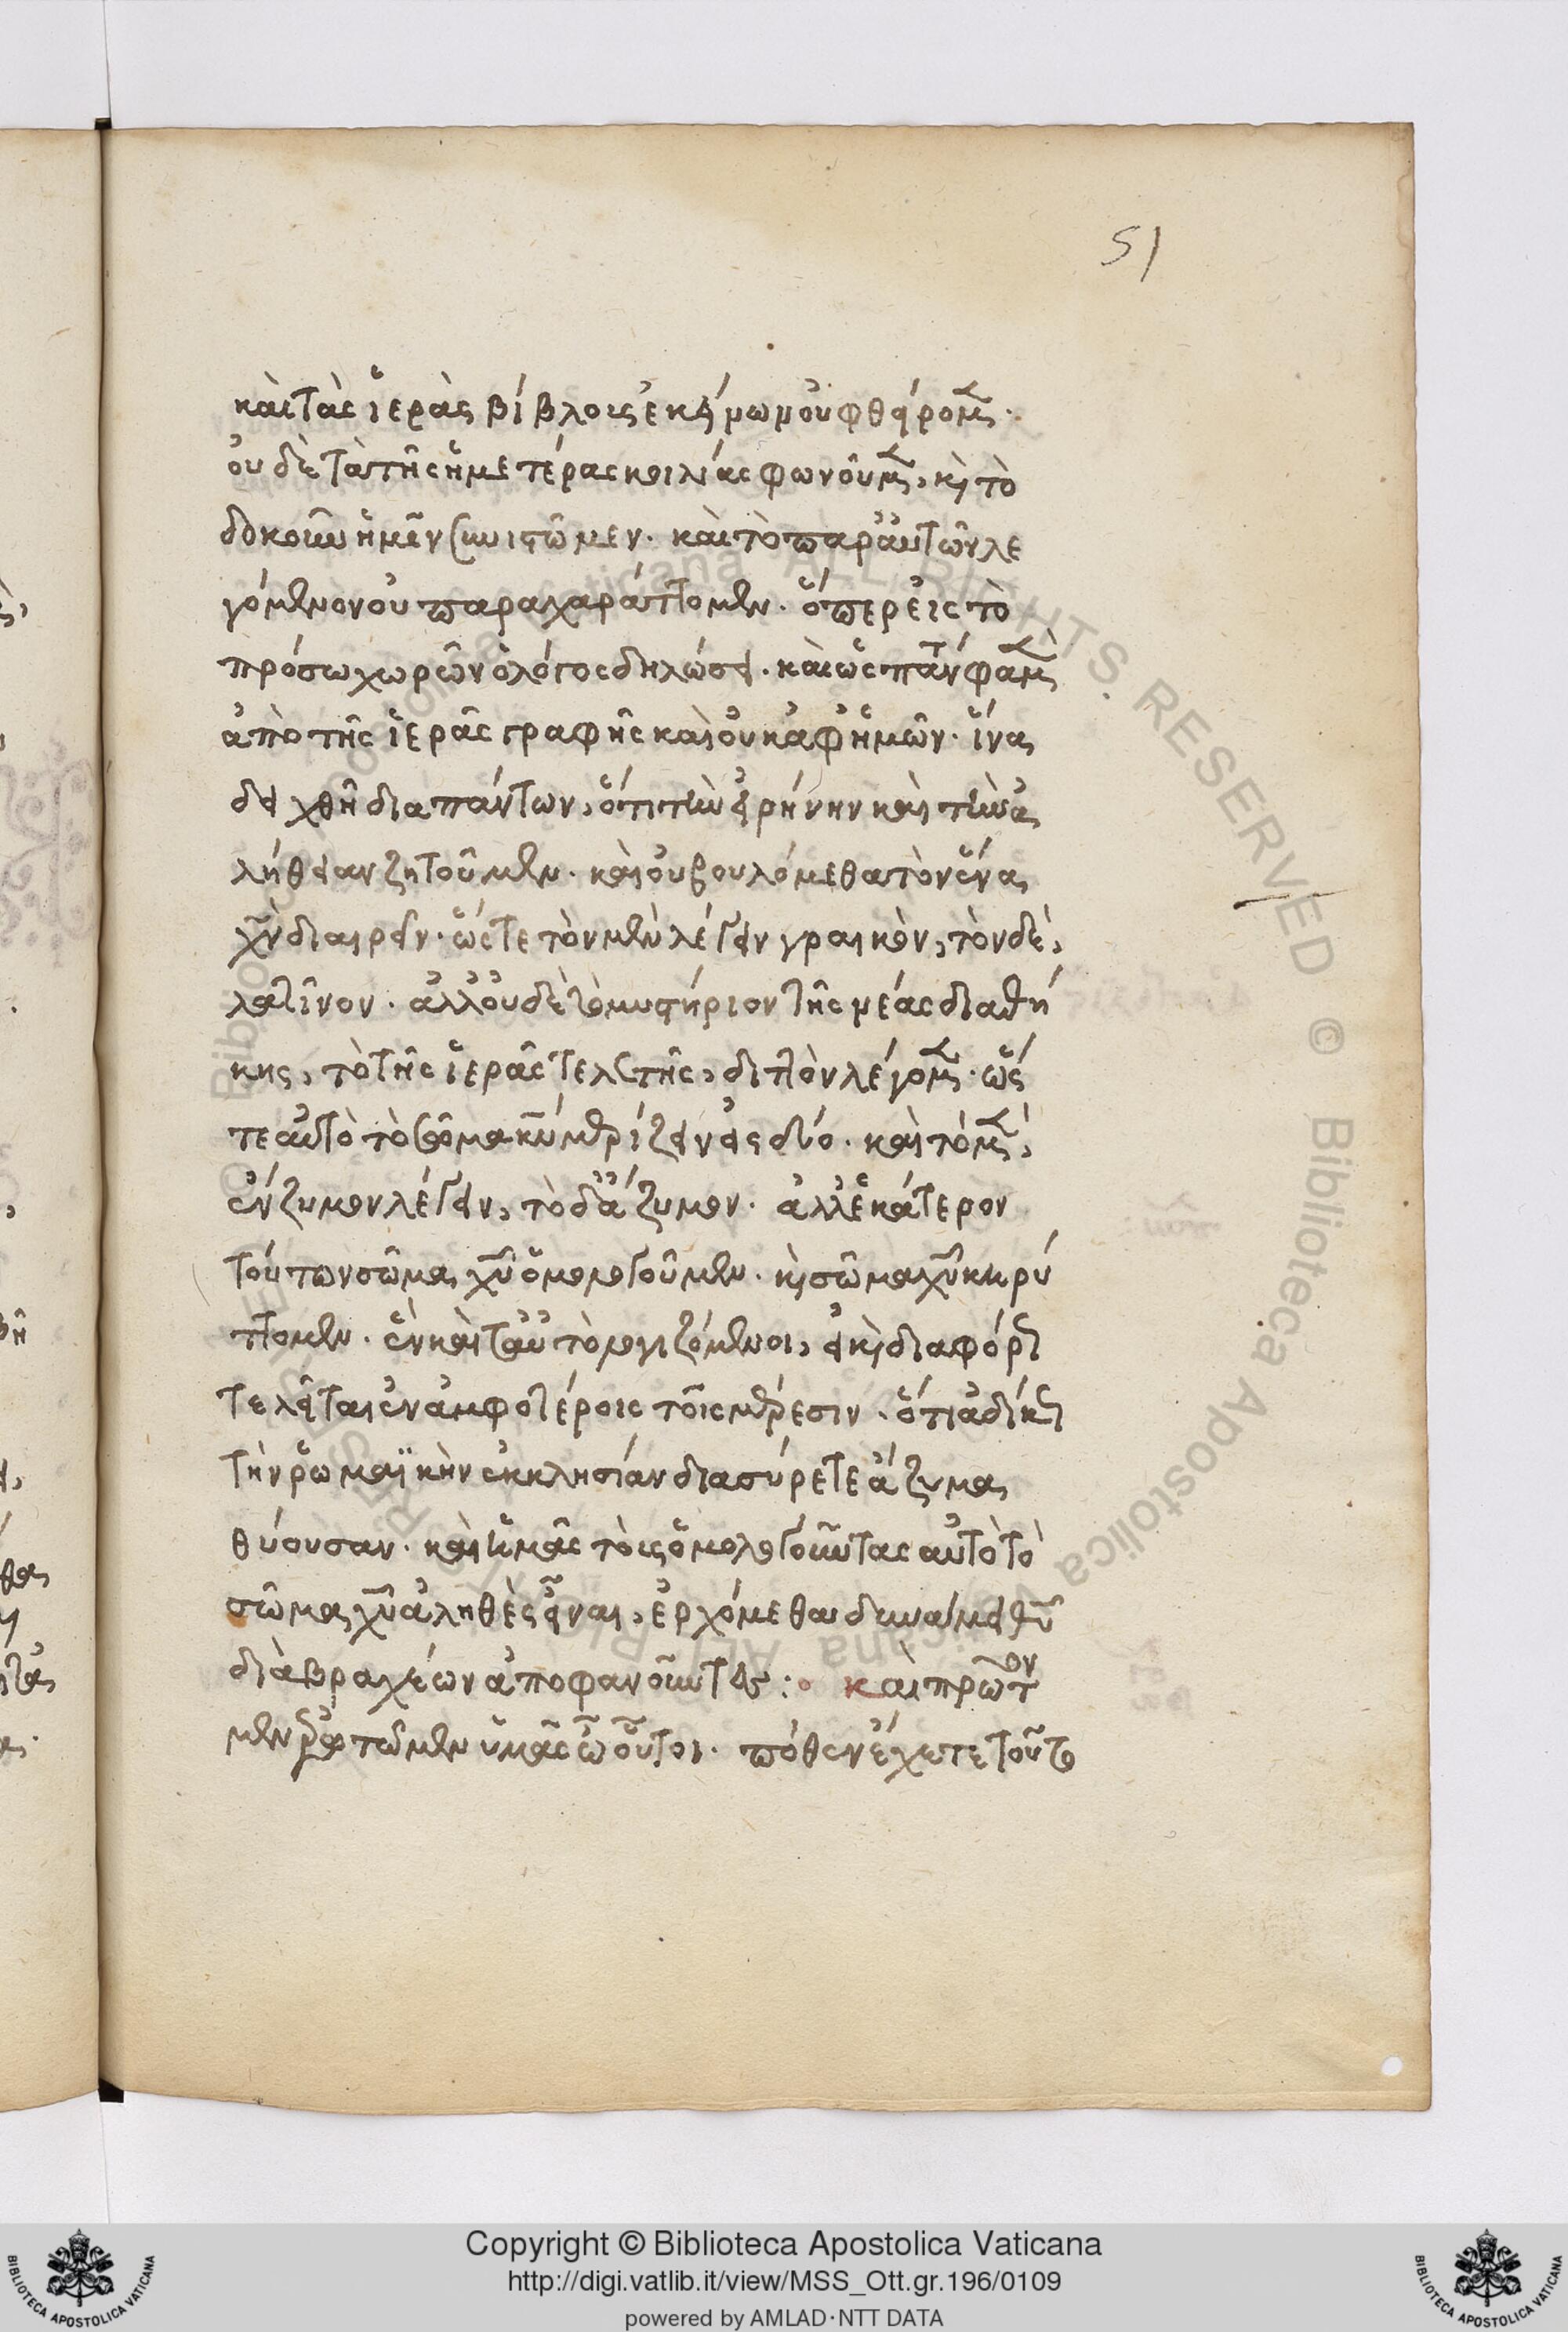 51
καὶ τὰς ἱερὰς βίβλους ἐκείνων οὐ φθείρομεν·
οὐδὲ τὰ τῆς ἡμετέρας κοιλίας φωνοῦμεν, καὶ τὸ
δοκοῦν ἡμῖν συνιστῶμεν· καὶ τὸ παρ' αὐτῶν λε
γόμενον οὐ παραχαράττομεν· ὅπερ εἰς τὸ
πρόσω χωρῶν ὁ λόγος δηλώσει· καὶ ὡς
ἀπὸ τῆς ἱερᾶς γραφῆς καὶ οὐκ ἀφ' ἡμῶν· ἵνα
δειχθῆ διαπάντων, ὅτι τὴν εἰρήνην καὶ τὴν ἀ
λήθειαν ζητοῦμεν· καὶ οὐ βουλόμεθα τὸν ἕνα
χν διαιρεῖν· ὥστε τὸν μὲν λέγειν γραικὸν, τὸν δὲ,
λατῖνον· ἀλλ' οὐδὲ τὸ μυστήριον τῆς νέας διαθή
κης, τὸ τῆς ἱερᾶς τελετῆς, διττὸν λέγομεν· ὥσ
τε αὐτὸ τὸ σῶμα κυ μερίζειν εἰς δύο· καὶ τὸ μὲν,
ἔνζυμον λέγειν, τὸ δ' ἄζυμον· ἀλλ' ἑκάτερον
τούτων σῶμα χυ ὁμολογοῦμεν· καὶ σῶμα χυ κηρύ
ττομεν· ἓν καὶ ταὐτὸ λογιζόμενοι, εἰ καὶ διαφόρως
τελεῖται ἐν ἀμφοτέροις τοῖς μέρεσιν· ὅτι ἀδίκως
τὴν ῥωμαϊκὴν ἐκκλησίαν διασύρετε ἄζυμα
θύουσαν· καὶ ἡμᾶς τοὺς ὁμολογοῦντας αὐτὸ τὸ
σῶμα χυ ἀληθὲς εἶναι, ἐρχόμεθα δυνάμει θυ
διὰ βραχέων ἀποφανοῦντες: καὶ πρῶτον
μὲν ἐρωτῶμεν ὑμᾶς ὦ οὗτοι· πόθεν ἔχετε τοῦτο
Copyright © Biblioteca Apostolica Vaticana
http://digi.vatlib.it/view/MSS_Ott.gr.196/0109
powered by AMLAD·NTT DATA